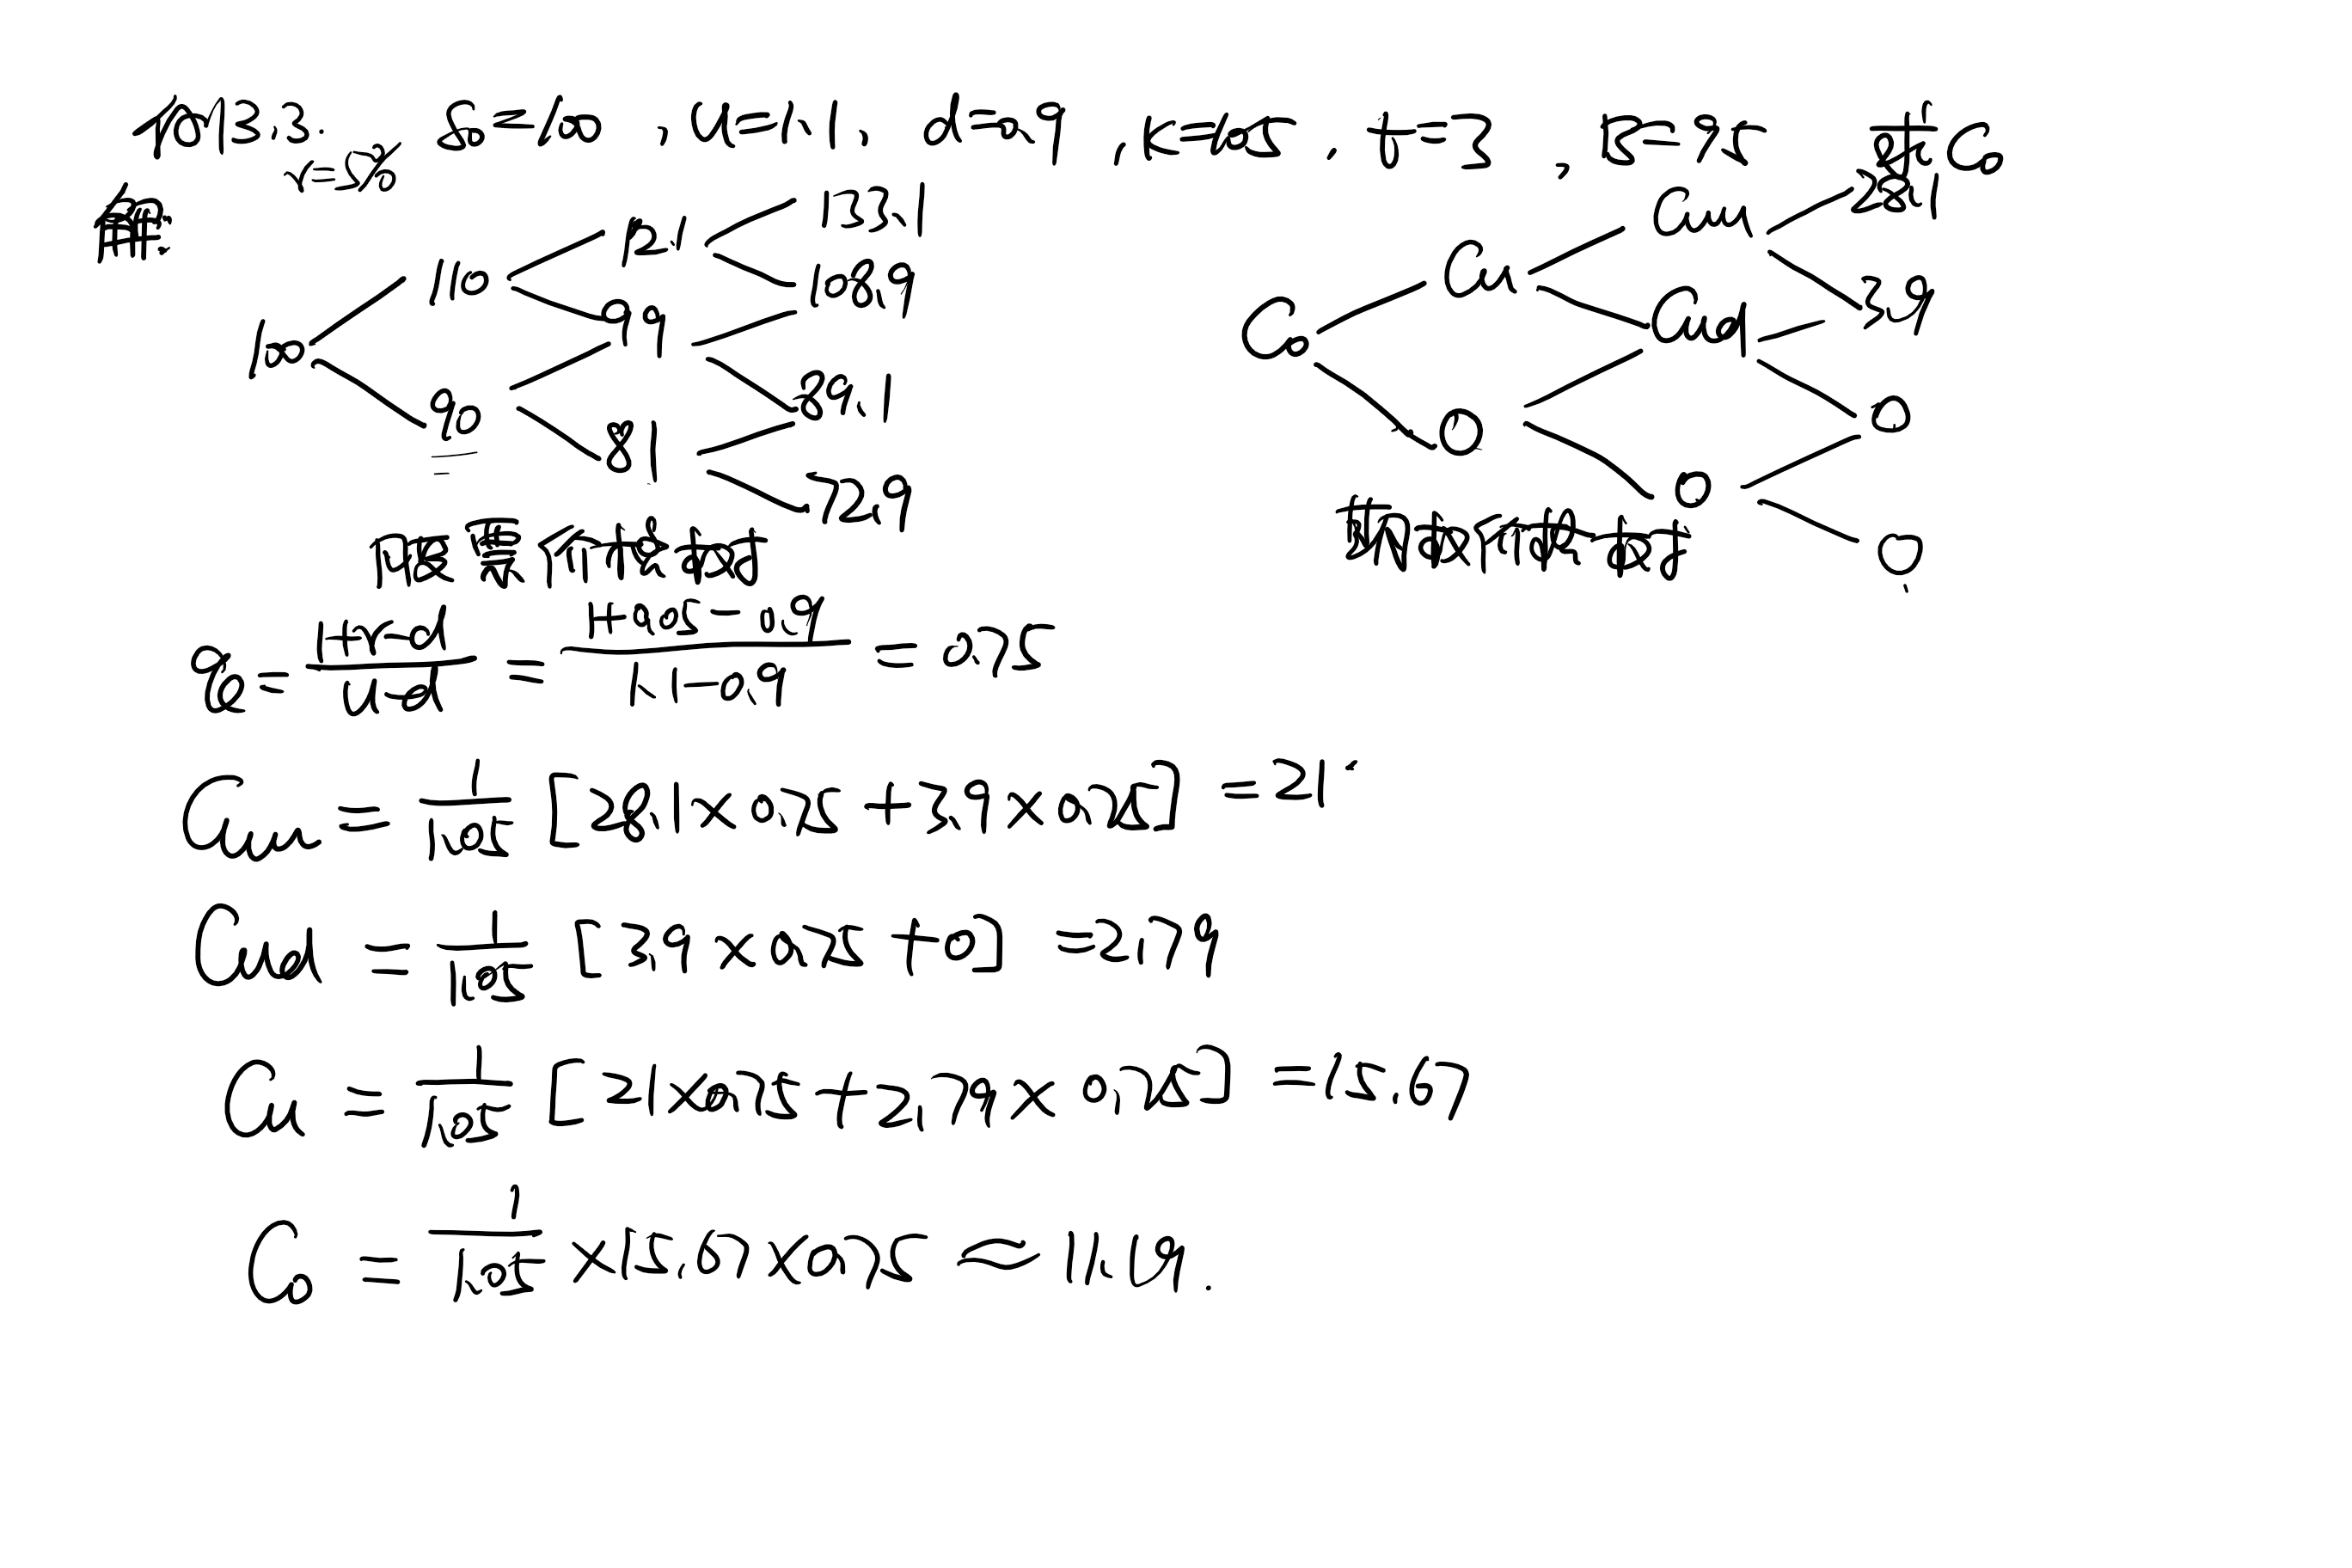 例3.3. S=100, u=1.1, d=0.9, K=105, t=3, 求C₀
r=5%
解:
100 110 90 121 99 81 133.1 108.9 89.1 72.9
C₀ Cu 0 Cuu Cud 0 28.1 3.9 0 0
股票价格 期权价格
q = (1+r-d)/(u-d) = (1+0.05-0.9)/(1.1-0.9) = 0.75
Cuu = 1/1.05 [28.1×0.75 + 3.9×0.25] = 21
Cud = 1/1.05 [3.9×0.75 + 0] = 2.79
Cu = 1/1.05 [21×0.75 + 2.79×0.25] = 15.67
C₀ = 1/1.05 × 15.67 × 0.75 ≈ 11.19.